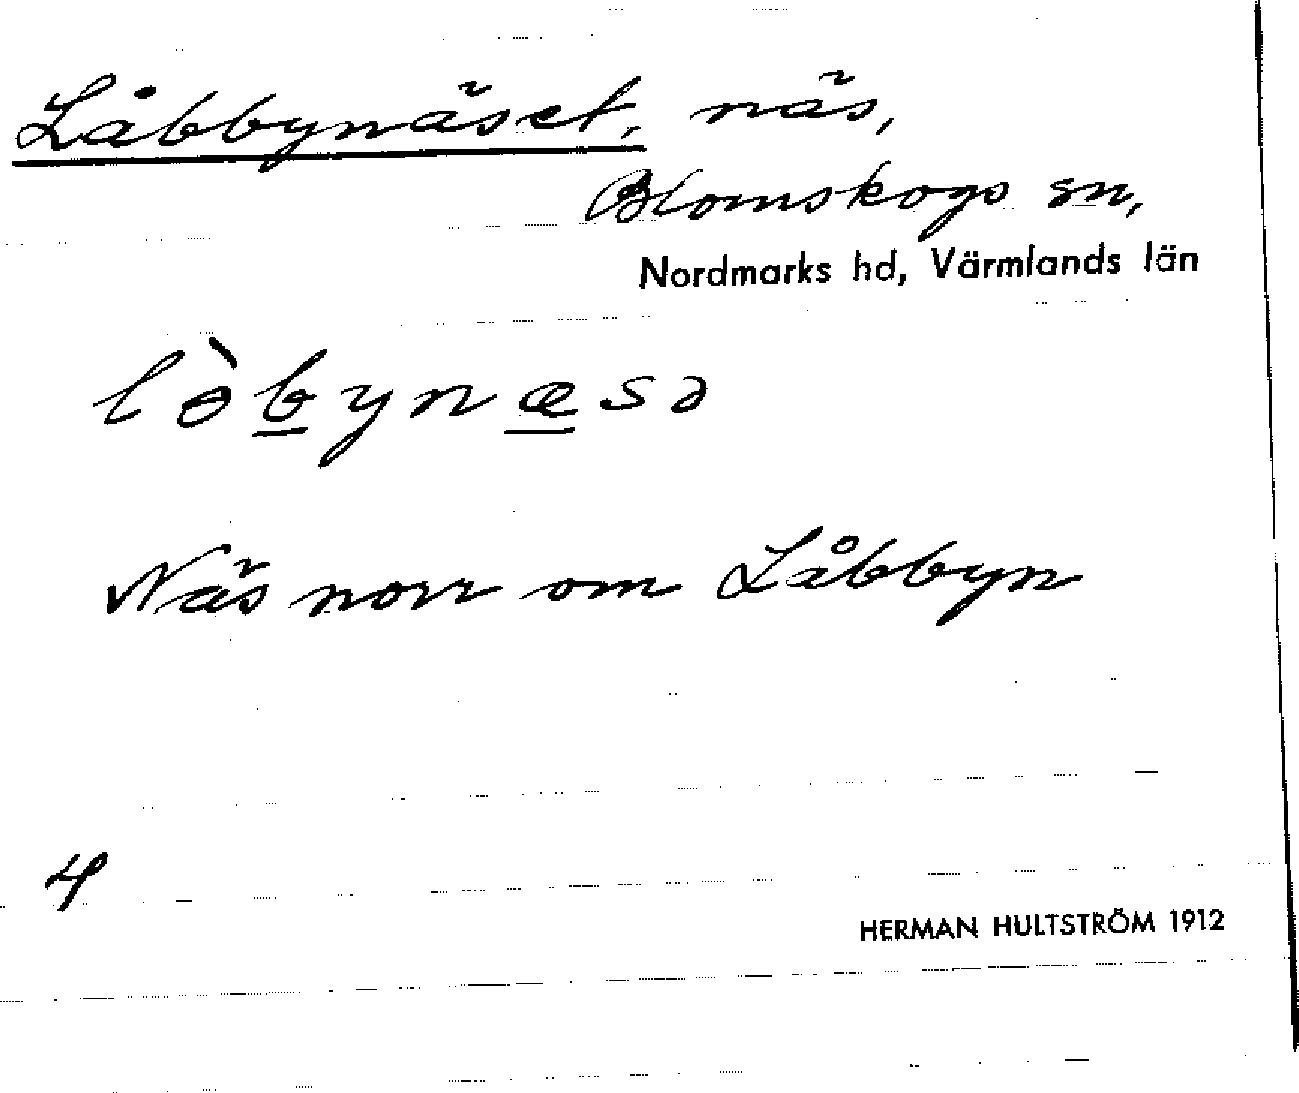 Låbbynäset, näs,
Blomskogs sn,
Nordmarks hd, Värmlands län
lɵ̀bynæsə
Näs norr om Låbbyn
4
HERMAN HULTSTRÖM 1912